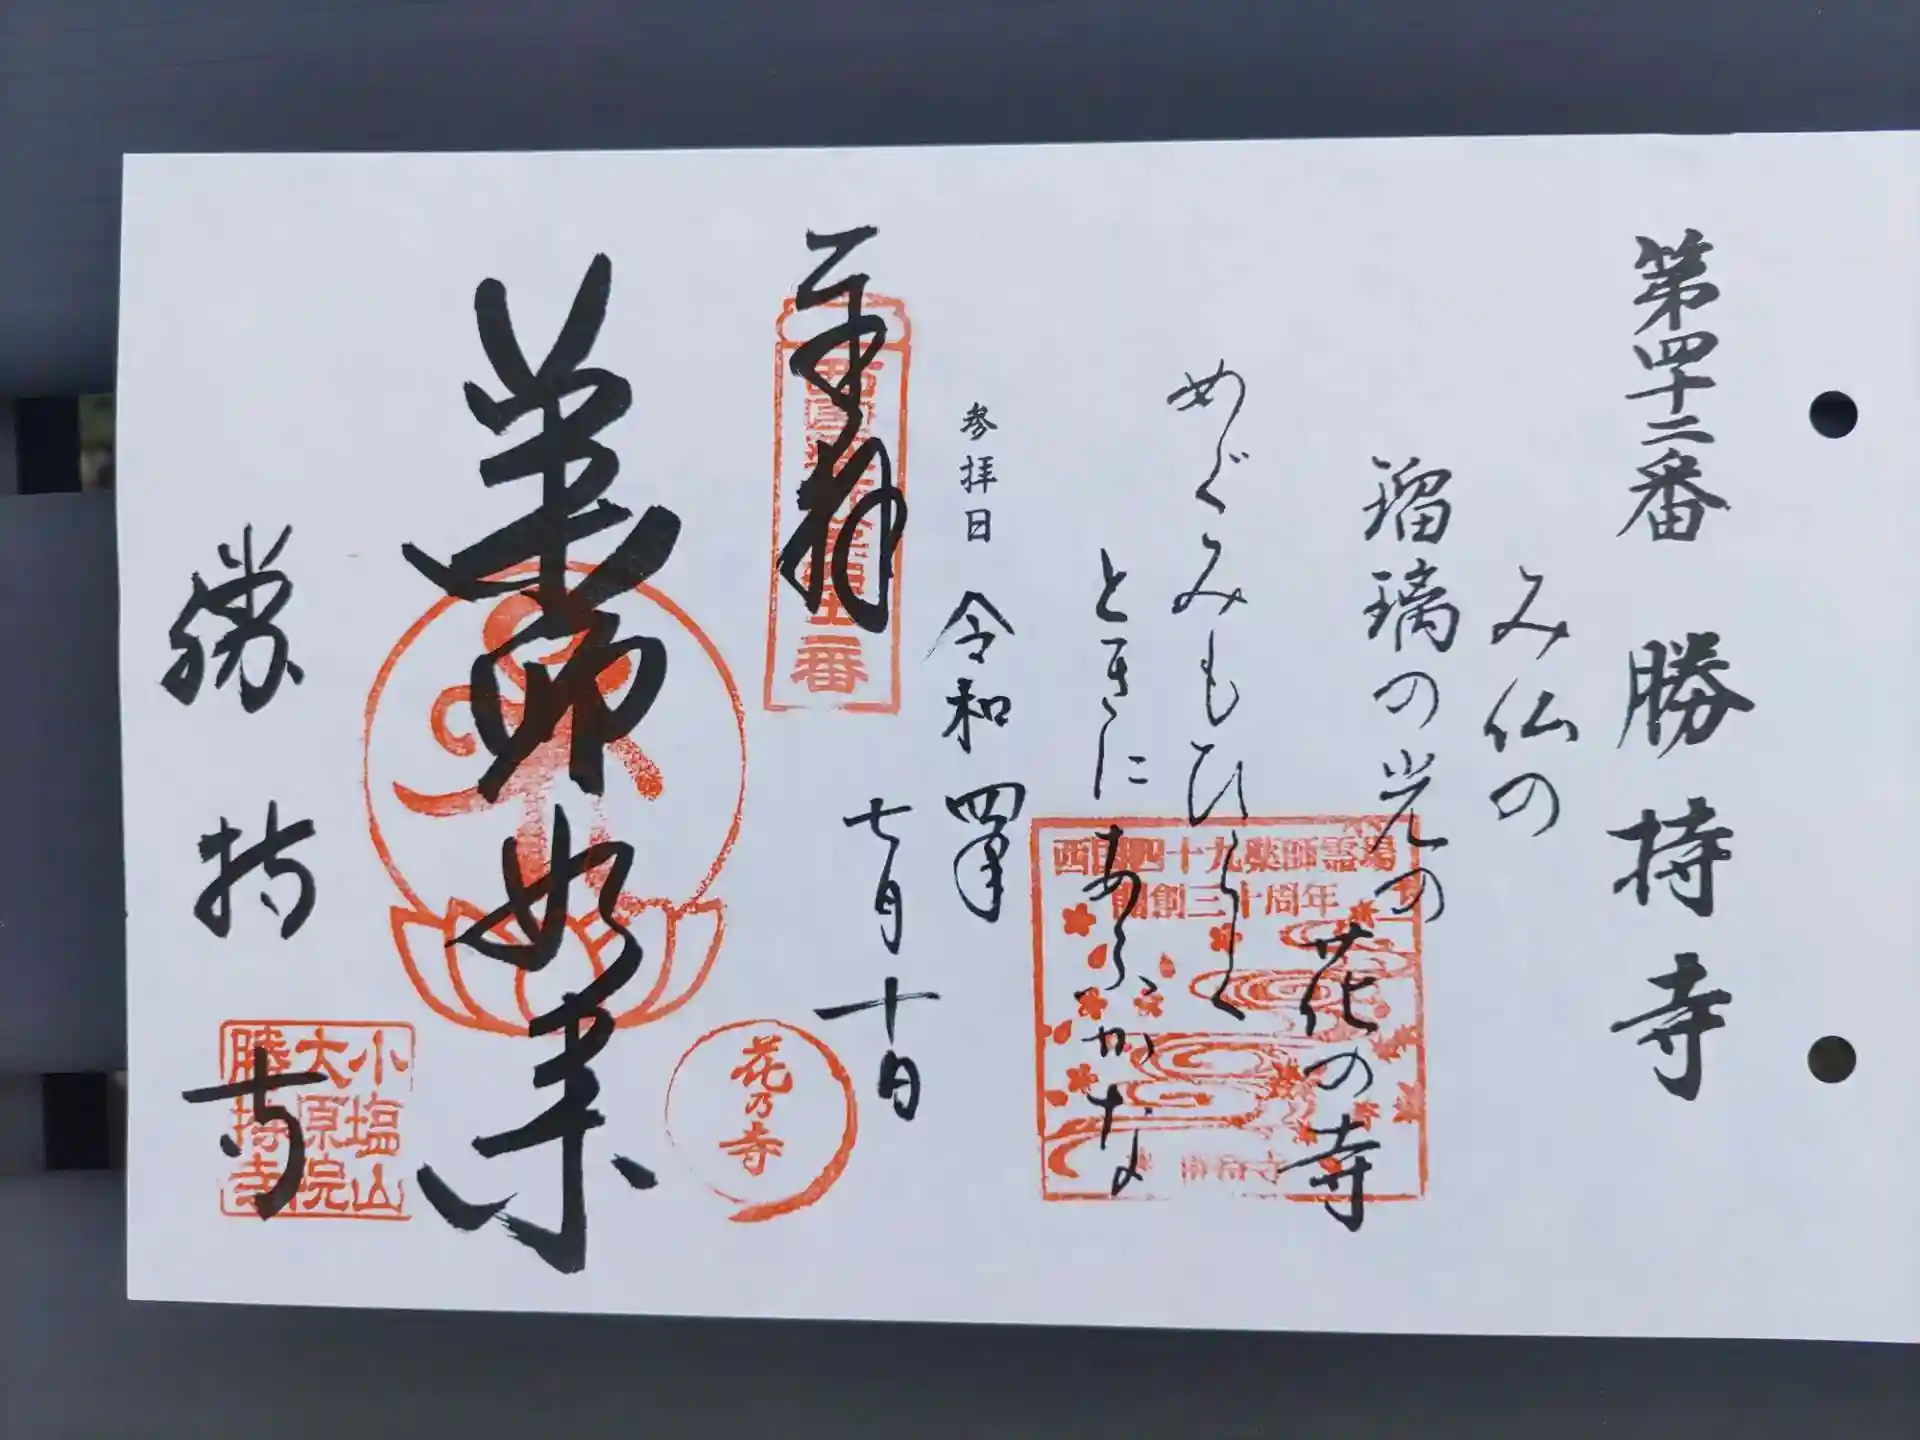 第四十二番　勝持寺
み仏の
瑠璃の光の
花の寺
めぐみもひらく
ときにあらずかな
参拝日　令和四年
七月十日
奉拝
西国薬師霊場第四十二番
薬師如来
勝持寺
西国四十九薬師霊場
開創三十周年
勝持寺
花乃寺
小塩山
大原院
勝持寺